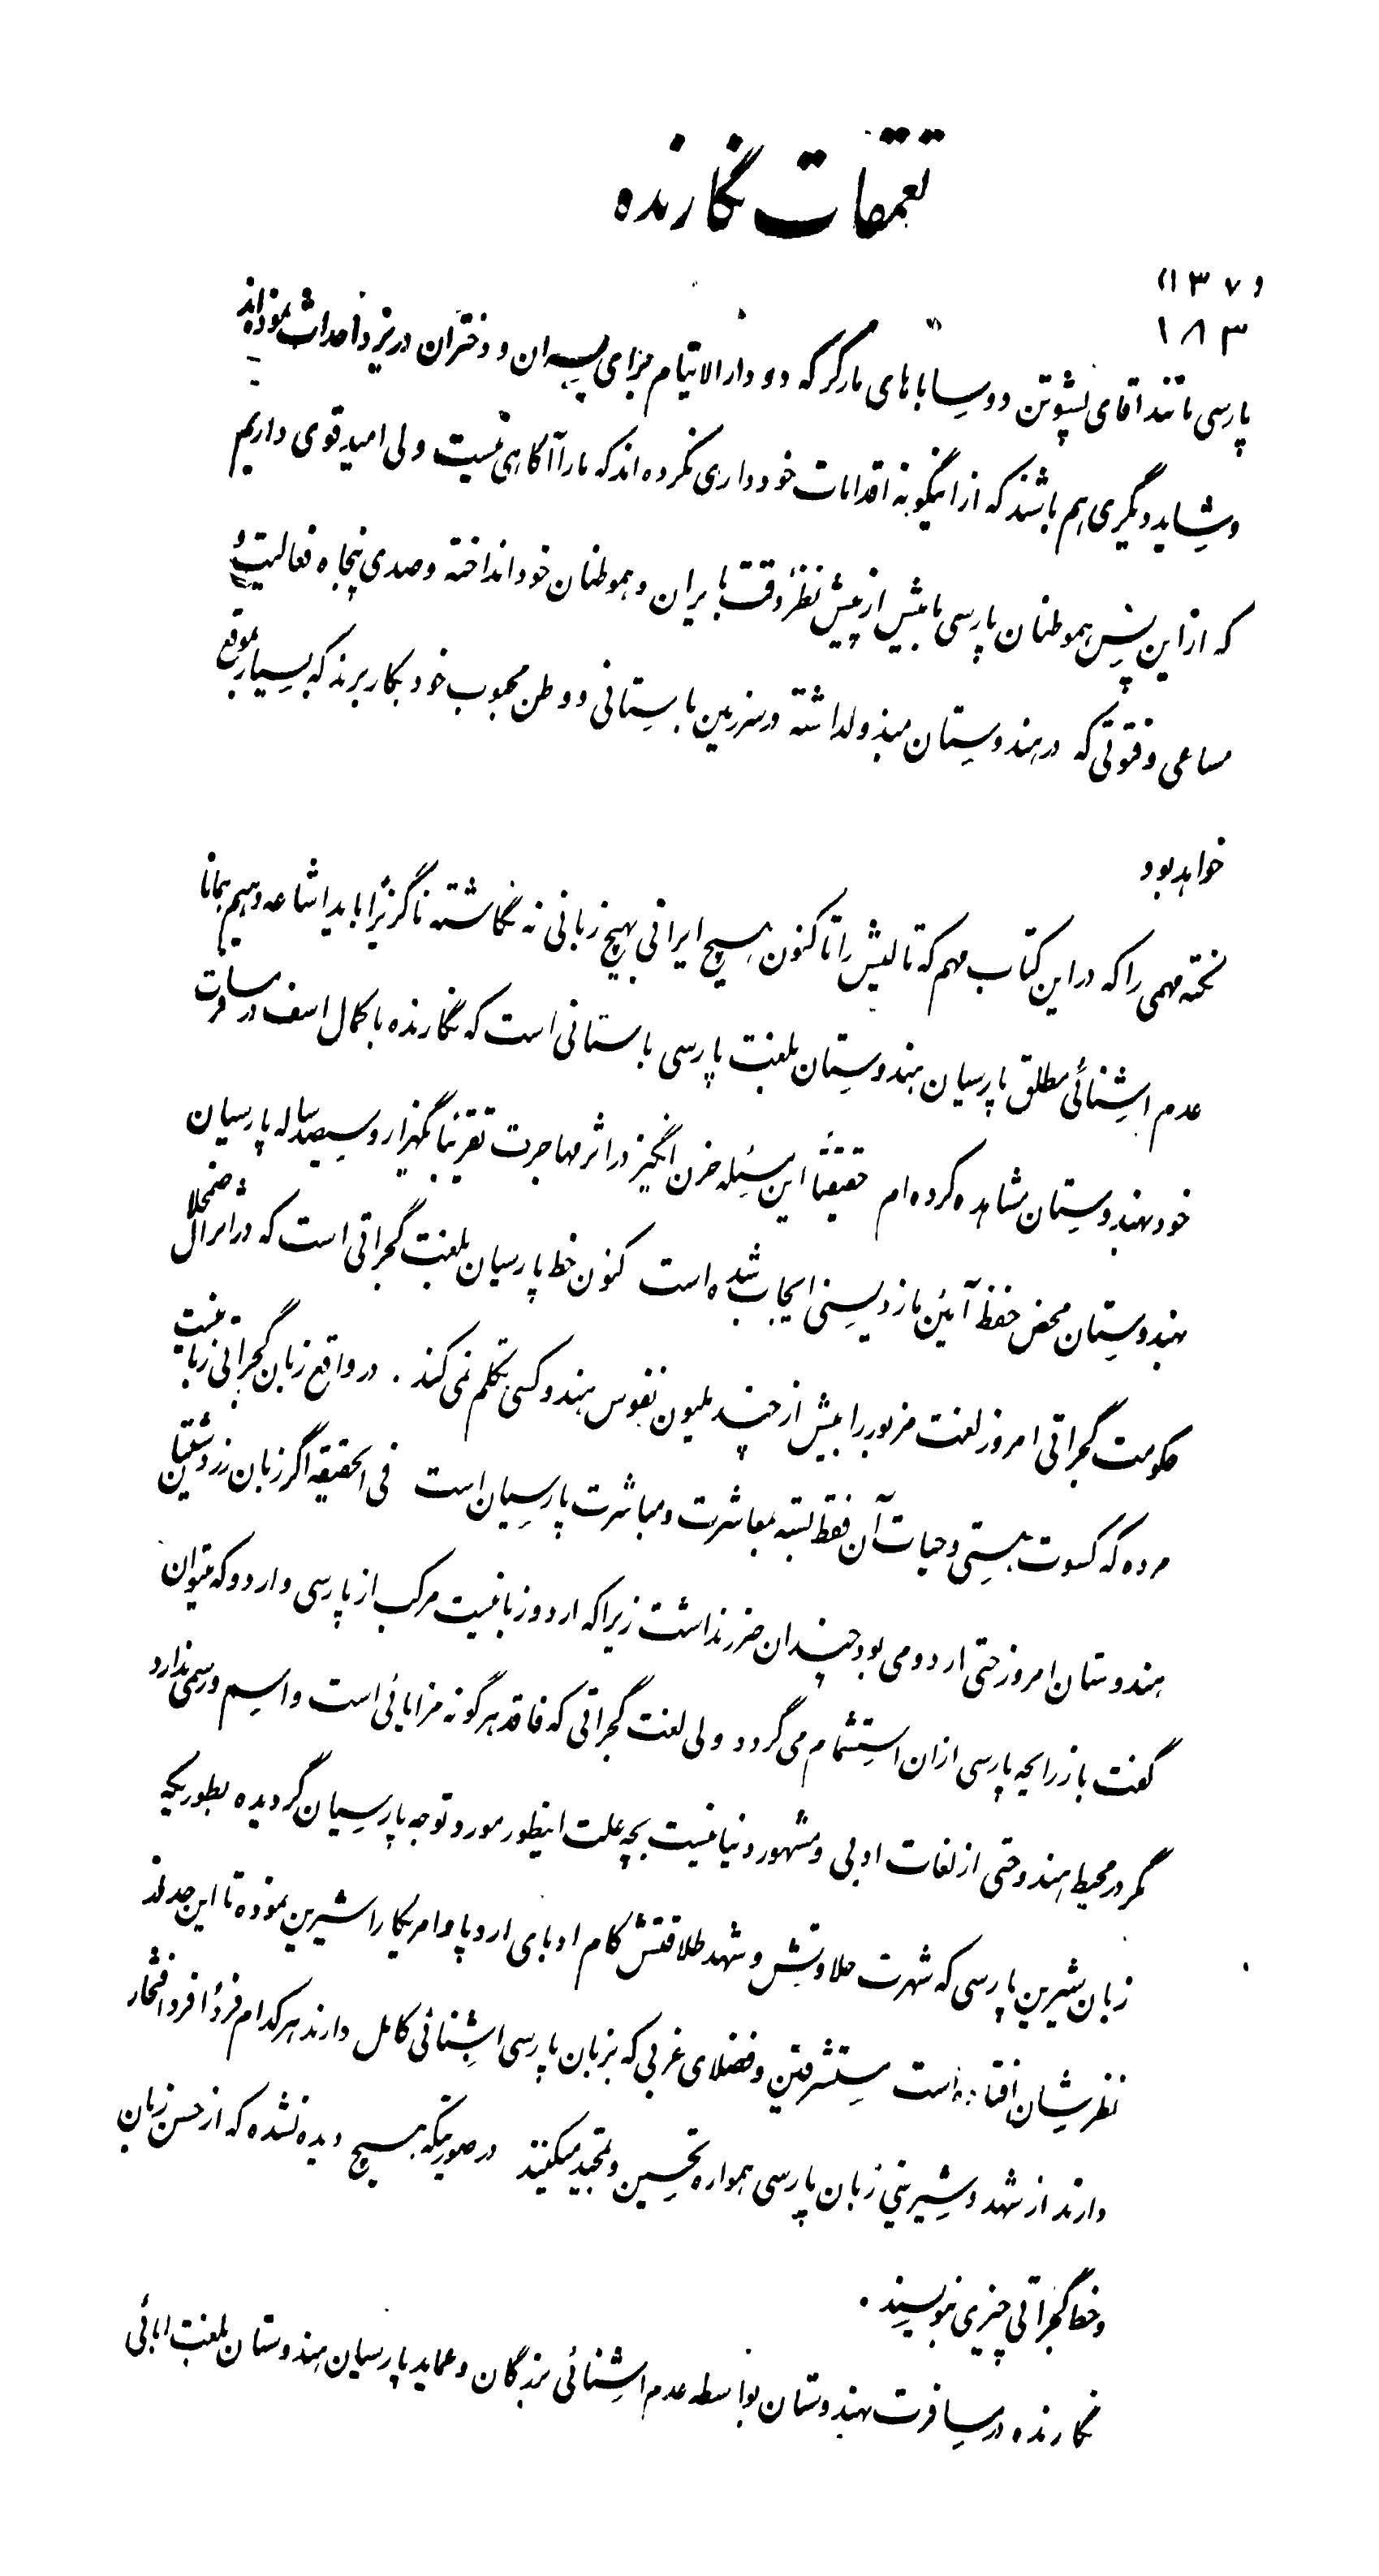 تعمقات نگارنده
(۱۳۷)
۱۸۳
پارسی مانند آقای پشوتن دوساباهای مارکر که دو دارالایتام برای پسران و دختران در یزد احداث نموده‌اند
و شاید دیگری هم باشند که از اینگونه اقدامات خودداری نکرده‌اند که ما را آگاهی نیست ولی امید قوی داریم
که از این پس هموطنان پارسی ما بیش از پیش نظر دقت بایران و هموطنان خود انداخته و صدی پنجاه فعالیت و
مساعی و فتوتی که در هندوستان مبذول داشته در سرزمین باستانی و وطن محبوب خود بکار برند که بسیار بموقع
خواهد بود
نکته مهمی را که در این کتاب مهم که تالیش را تاکنون هیچ ایرانی بهیچ زبانی نه نگاشته ناگزیرا باید اشاعه دهیم همانا
عدم آشنائی مطلق پارسیان هندوستان بلغت پارسی باستانی است که نگارنده با کمال اسف در مسافرت
خود بهندوستان مشاهده کرده‌ام حقیقتاً این مسئله حزن انگیز در اثر مهاجرت تقریباً یکهزار و سیصد ساله پارسیان
بهندوستان محض حفظ آیین مازدیسنی ایجاب شده است کنون خط پارسیان بلغت گجراتی است که در اثر اضمحلال
حکومت گجراتی امروز لغت مزبور را بیش از چند ملیون نفوس هندو کسی تکلم نمی کند . در واقع زبان گجراتی زبانیست
مرده که کسوت هستی و حیات آن فقط بسته بمعاشرت و مباشرت پارسیان است فی الحقیقه اگر زبان زردشتیان
هندوستان امروز حتی اردو می بود چندان ضرر نداشت زیرا که اردو زبانیست مرکب از پارسی و اردو که میتوان
گفت باز رایحه پارسی از ان استشمام می گردد ولی لغت گجراتی که فاقد هرگونه مزایائی است و اسم و رسمی ندارد
مگر در محیط هند و حتی از لغات ادبی و مشهور دنیا نیست بچه علت اینطور مورد توجه پارسیان گردیده بطوریکه
زبان شیرین پارسی که شهرت حلاوتش و شهد طلاقتش کام ادبای اروپا و امریکا را شیرین نموده تا این حد از
نظرشان افتاده است مستشرقین و فضلای غربی که بزبان پارسی اشنائی کامل دارند هرکدام فرداً فرد افتخار
دارند از شهد و شیرینی زبان پارسی همواره تحسین و تمجید میکنند در صورتیکه هیچ دیده نشده که از حسن زبان
و خط گجراتی چیزی بنویسند .
نگارنده در مسافرت بهندوستان بواسطه عدم اشنائی بزرگان و عماید پارسیان هندوستان بلغت ابائی